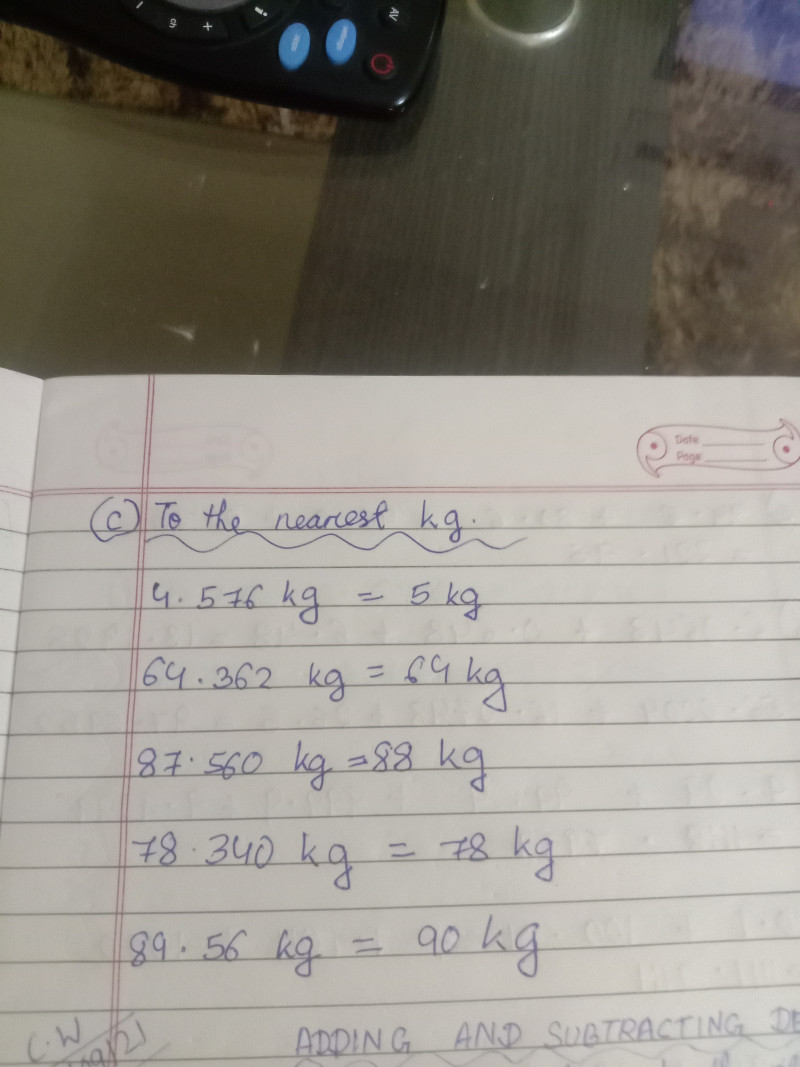 Date
Page
(C) To the nearest kg.
4.576 kg = 5 kg
64.362 kg = 64 kg
87.560 kg = 88 kg
78.340 kg = 78 kg
89.56 kg = 90 kg
C.W
ADDING AND SUBTRACTING DE